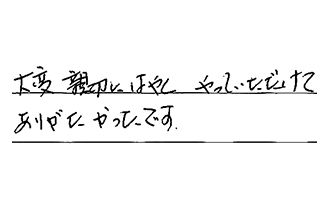 大変 親切にはやく やっていただけて
ありがたかったです.